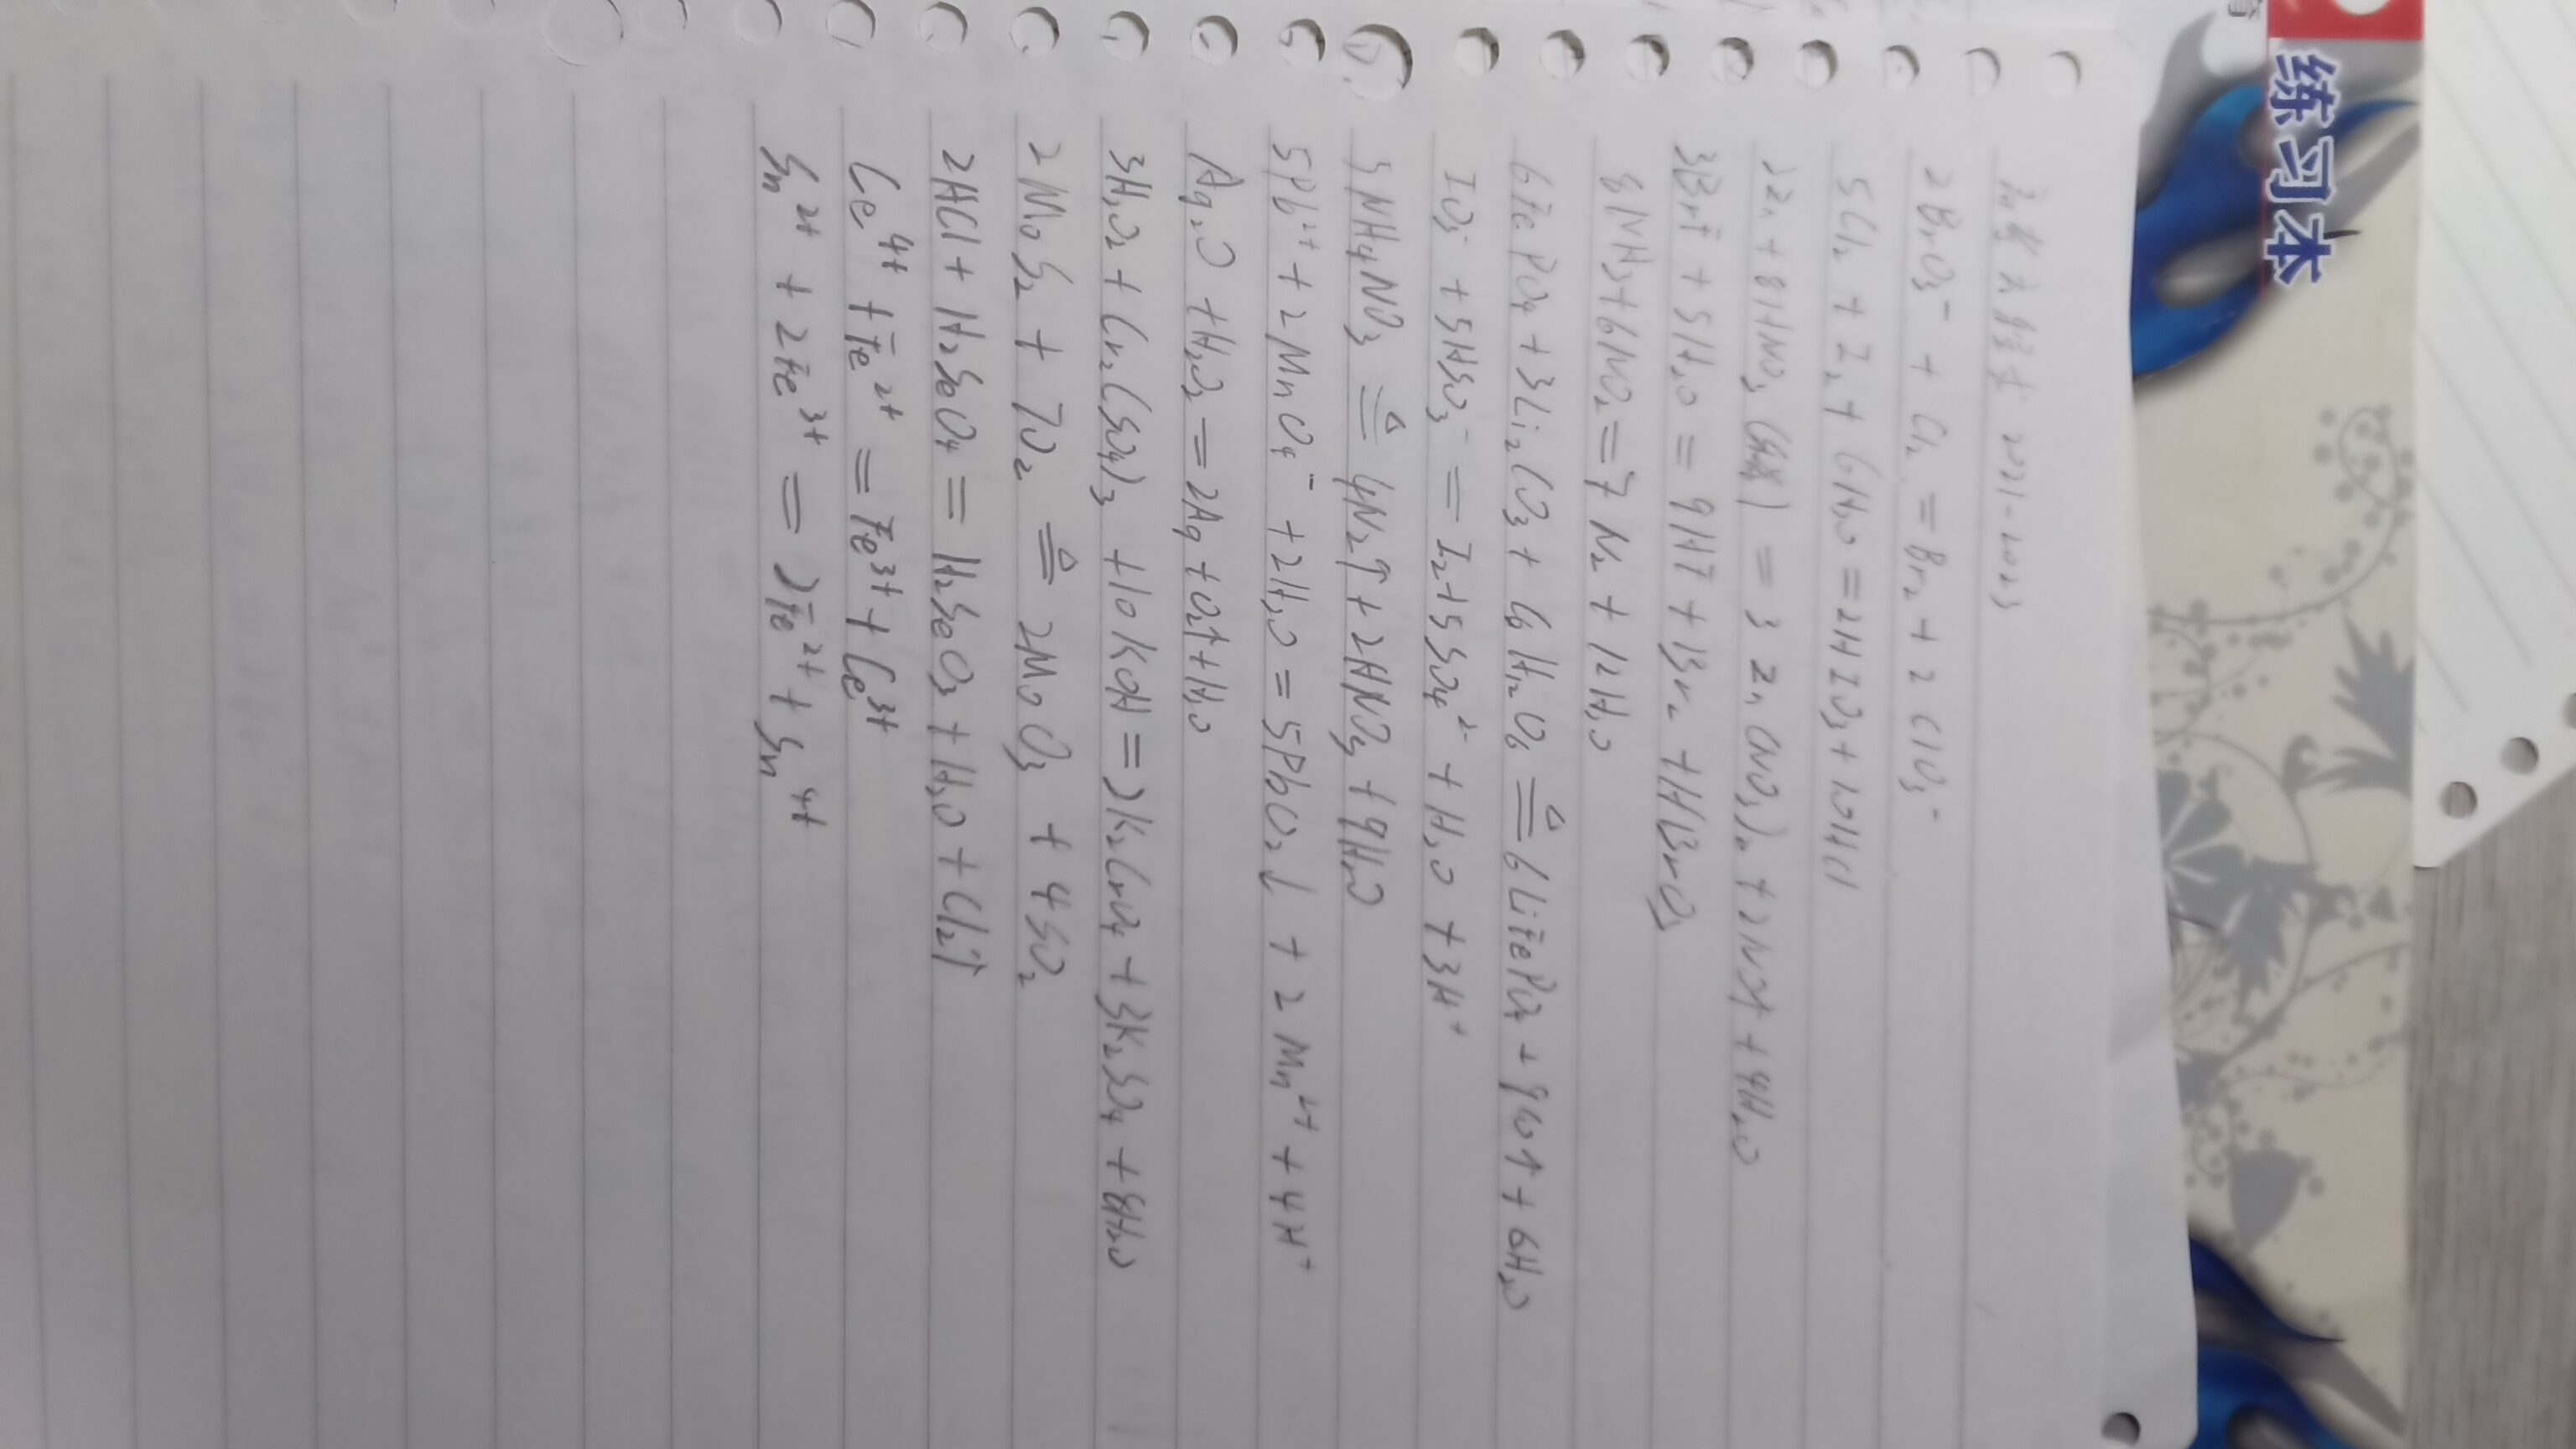 练习本
2021-2023
2BrO3⁻ + Cl2 = Br2 + 2ClO3⁻
5Cl2 + I2 + 6H2O = 2HIO3 + 10HCl
3Zn + 8HNO3 () = 3Zn(NO3)2 + 2NO↑ + 4H2O
3BrF + 5H2O = 9HF + Br2 + HBrO3
8NH3 + 6NO2 = 7N2 + 12H2O
6FePO4 + 3Li2CO3 + C6H12O6 ≜ 6LiFePO4 + 9CO↑ + 6H2O
IO3⁻ + 5HSO3⁻ = I2 + 5SO4²⁻ + H2O + 3H⁺
5NH4NO3 ≜ 4N2↑ + 2HNO3 + 9H2O
5Pb²⁺ + 2MnO4⁻ + 2H2O = 5PbO2↓ + 2Mn²⁺ + 4H⁺
Ag2O + H2O2 = 2Ag + O2↑ + H2O
3H2O2 + Cr2(SO4)3 + 10KOH = 2K2CrO4 + 3K2SO4 + 8H2O
2MoS2 + 7O2 ≜ 2MoO3 + 4SO2
2HCl + H2SeO4 = H2SeO3 + H2O + Cl2↑
Ce⁴⁺ + Fe²⁺ = Fe³⁺ + Ce³⁺
Sn²⁺ + 2Fe³⁺ = 2Fe²⁺ + Sn⁴⁺